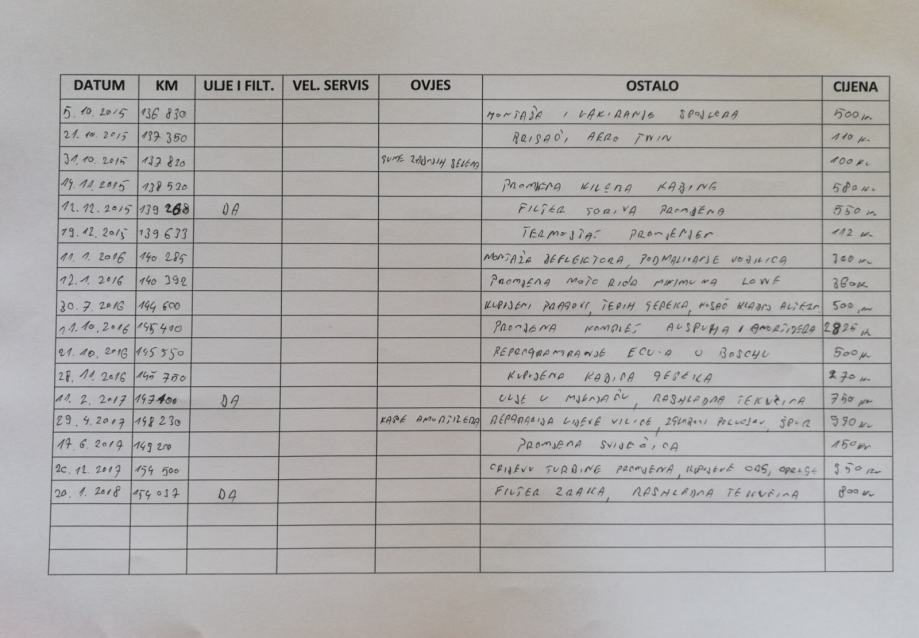 DATUM KM ULJE I FILT. VEL. SERVIS OVJES OSTALO CIJENA
5.10.2015 136 830 MONTAŽA I LAKIRANJE SPOJLERA 500 kn
21.10.2015 137 350 BRISAČI AERO TWIN 110 kn
31.10.2015 137 820 GUME ZADNJIH 100 kn
14.11.2015 138 520 PROMJENA FILTERA KABINE 580 kn
12.12.2015 139 268 DA FILTER GORIVA PROMJENA 550 kn
19.12.2015 139 633 TERMOSTAT PROMJENJEN 112 kn
11.1.2016 140 285 MONTAŽA DEFLEKTORA, PODMAZIVANJE VODILICA 300 kn
12.1.2016 140 392 PROMJENA MOTORIĆA 360 kn
30.7.2016 144 600 KUPLJENI PRAGOVI, TEPIH GEPEKA, 500 kn
11.10.2016 145 400 PROMJENA KOMPLET AUSPUHA I AMORTIZERA 2825 kn
21.10.2016 145 550 REPROGRAMIRANJE ECU-A U BOSCHU 500 kn
28.11.2016 145 750 KUPLJENA GEPEKA 270 kn
11.2.2017 147 100 DA ULJE U MJENJAČU, RASHLADNA TEKUĆINA 750 kn
29.4.2017 148 230 KAPE AMORTIZERA REPARACIJA LIJEVE VILICE, POLUOSOV, ŠPUR 990 kn
17.6.2017 149 200 PROMJENA SVIJEĆICA 150 kn
20.12.2017 154 500 CRIJEVO TURBINE PROMJENA, 350 kn
20.1.2018 154 937 DA FILTER ZRAKA, RASHLADNA TEKUĆINA 800 kn